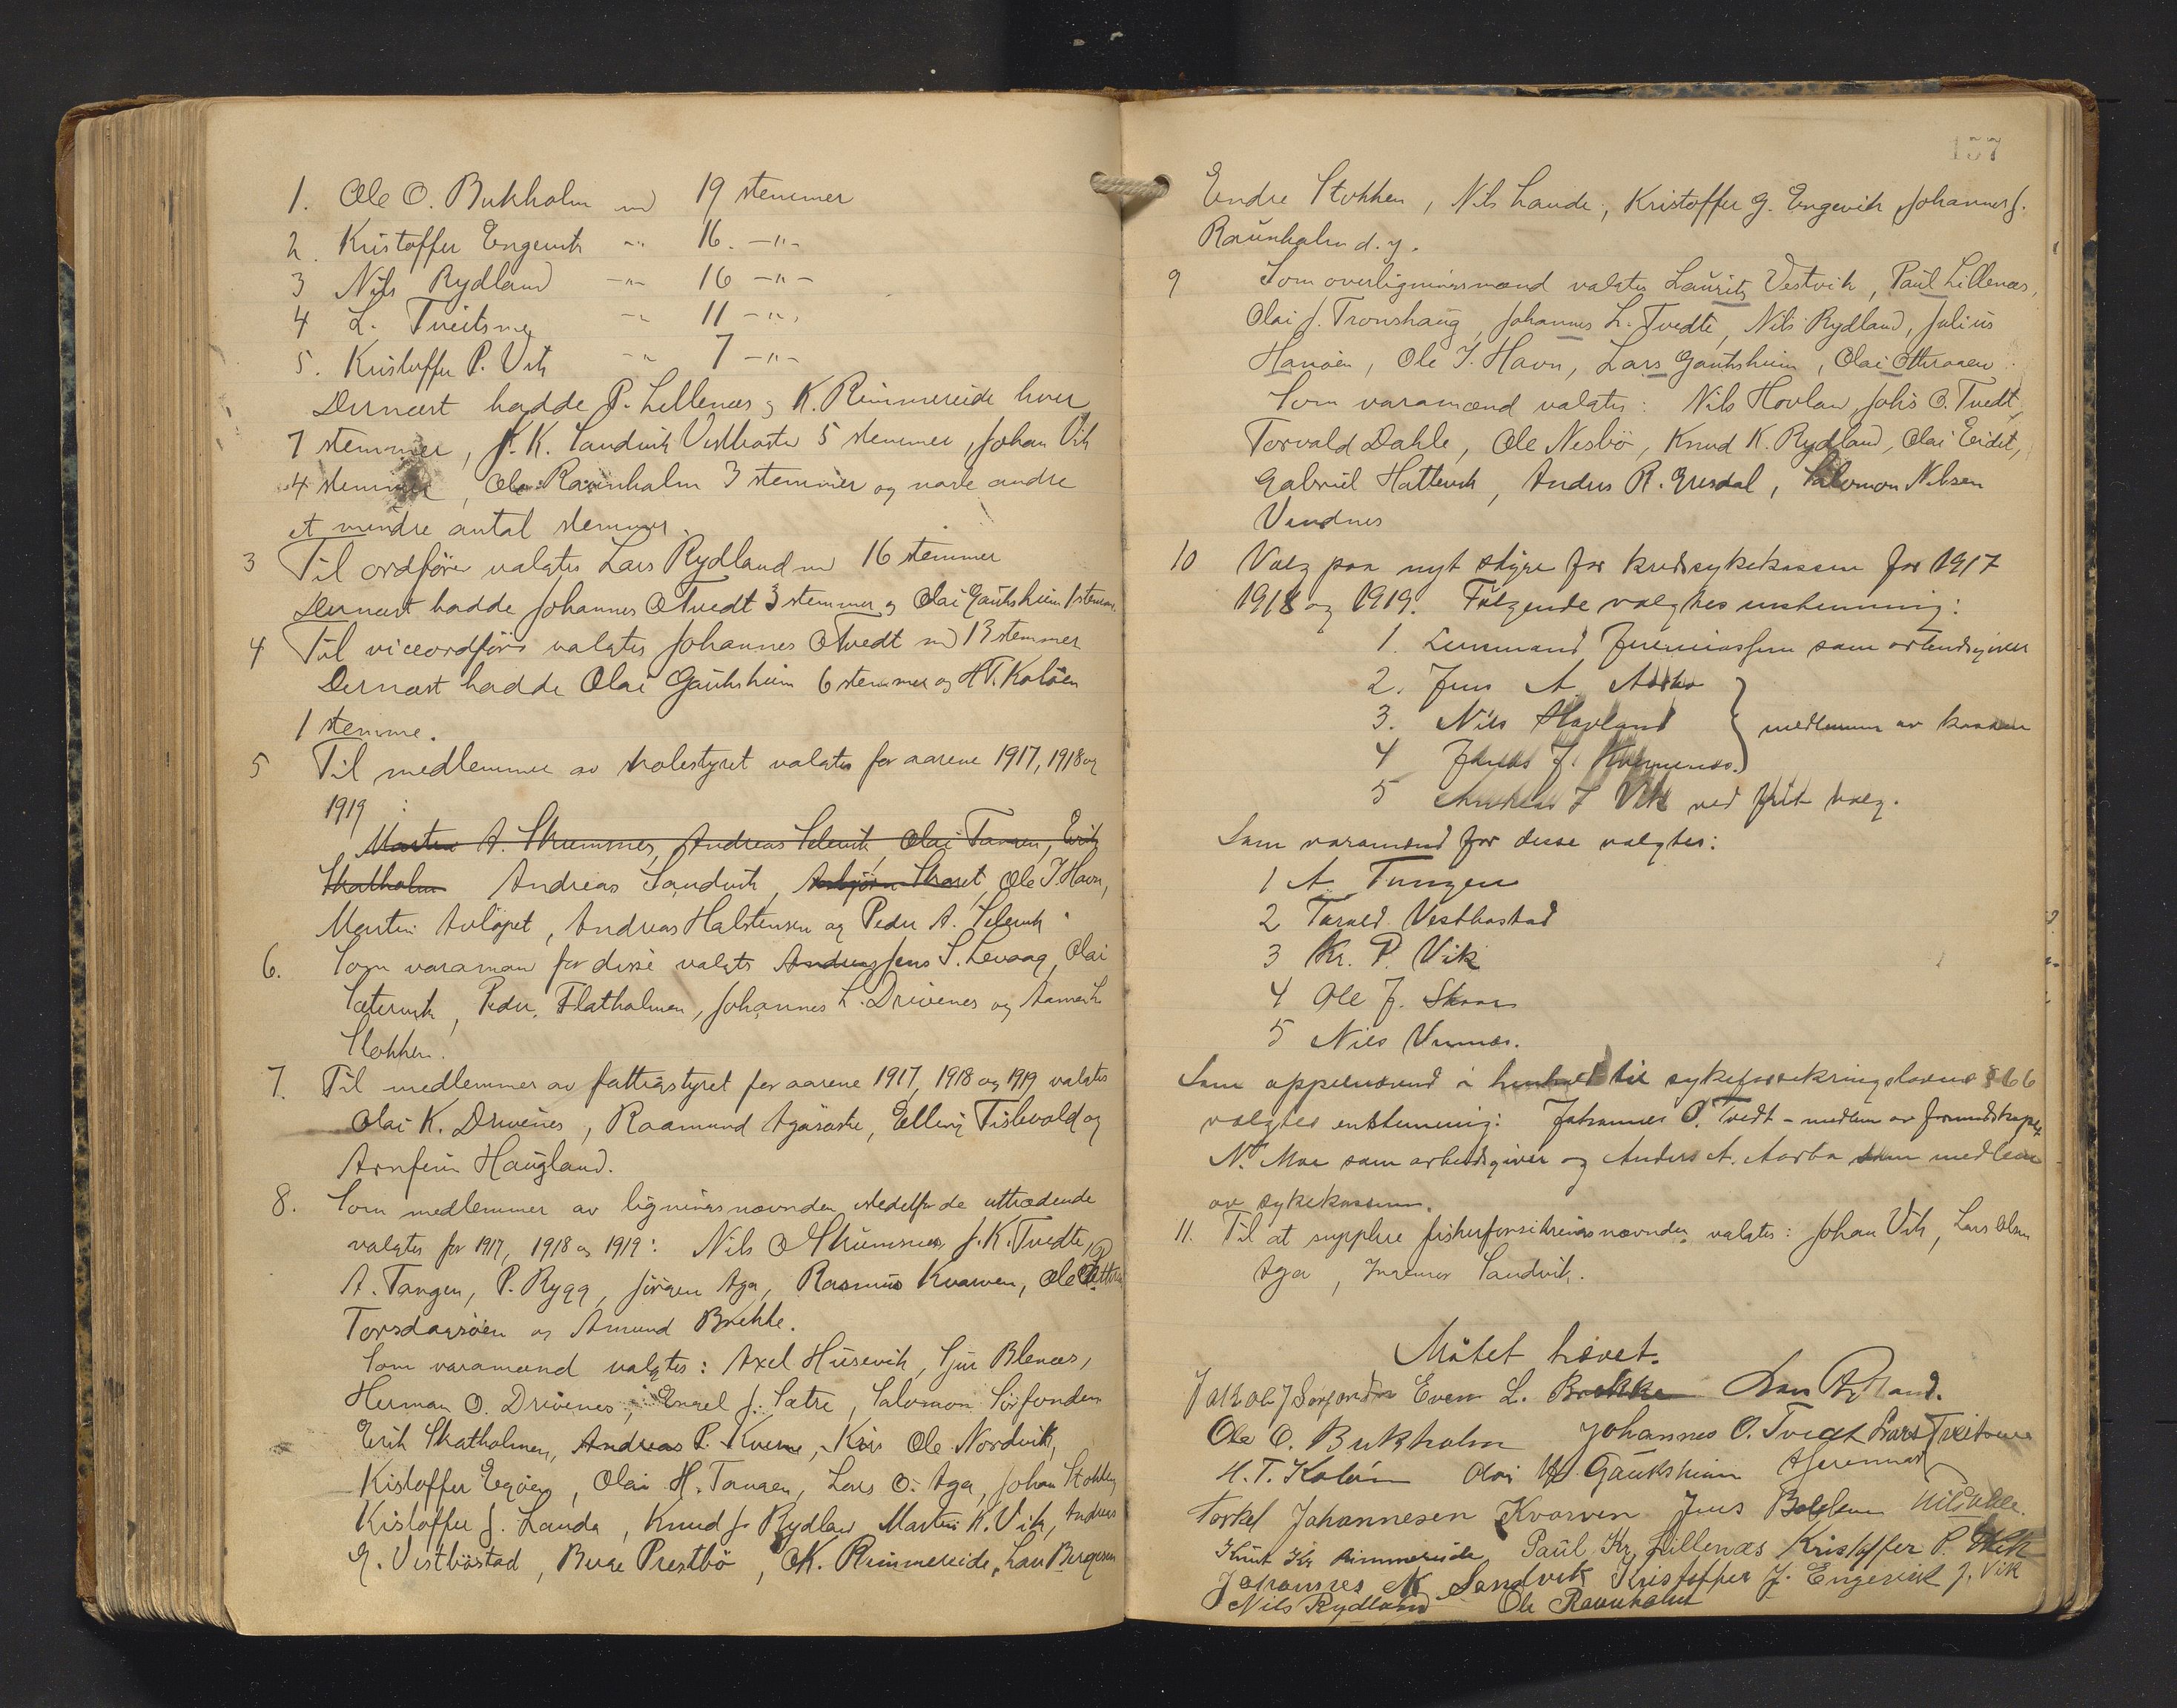 1. Ole O. Bukholm m 19 stemmer
2. Kristoffer Engevik -"- 16. -"-
3 Nils Rydland -"- 16 -"-
4 L. Tveitsme -"- 11 -"-
5. Kristoffer P. Vik -"- 7 -"-
Dernæst hadde P. Lillenæs og K. Rimmereide hver
7 stemmer, J. K. Sandvik Vestbostad 5 stemmer, Johan Vik
4 stemmer, Ole Raunholm 3 stemmer og nogle andre
et mindre antal stemmer.
3 Til ordfører valgtes Lars Rydland m 16 stemmer
Dernæst hadde Johannes O Tvedt 3 stemmer og Olai Gauksheim 1 stemme
4 Til viceordfører valgtes Johannes O Tvedt m 13 stemmer
Dernæst hadde Olai Gauksheim 6 stemmer og H T. Koløen
1 stemme.
5 Til medlemmer av skolestyret valgtes for aarene 1917, 1918 og
1919 :
Martin A. Skumsnes, Andreas Selevik, Olai Tangen, Erik
Skatholm Andreas Sandvik, Asbjørn Skaret, Ole J. Havn,
Martin Avløpet, Andreas Halstensen og Peder A. Selevik.
6. Som varamæn for disse valgtes Andreas Jens S. Levaag, Olai
Sætervik, Peder Flatholmen, Johannes L. Drivenes og
Stokken.
7. Til medlemmer av fattigstyret for aarene 1917, 1918 og 1919 valgtes
Olai K. Drivenes, Raamund Agasøstre, Elling Tislevold og
Arnfinn Haugland.
8. Som medlemmer av ligningsnævnden istedetfor de uttrædende
valgtes for 1917, 1918 og 1919: Nils O Skumsnes, J. K. Tvedte,
A. Tangen, P. Rygg, Jørgen Aga, Rasmus Kvarven, Ole P.
Torsdagsøen og Amund Brekke.
Som varamænd valgtes: Axel Husevik, Sjur Blenes,
Herman O. Drivenes, Engel J. Sætre, Salomon Sørfonden
Erik Skatholmen, Andreas P. Kverne, Kris Ole Nordvik,
Kistoffer Eggøen, Olai H. Tangen, Lars O. Aga, Johan Stokken
Kistoffer J. Landa, Knud J. Rydland Martin K. Vik, Andreas
G. Vestbøstad, Berge Prestbø, K. Rimmereide, Lars Bergesen
157
Endre Stokken, Nils Lande, Kristoffer G. Engevik, Johannes J.
Raunholm d. y.
9 Som overligningsmænd valgtes Laurits Vestvik, Paul Lillenæs,
Olai J. Tronshaug, Johannes L. Tvedte, Nils Rydland, Julius
Hanøen, Ole J. Havn, Lars Gauksheim, Olai Otteraaen.
Som varamænd valgtes: Nils Hovland, Johs O. Tvedt,
Torvald Dahle, Ole Nesbø, Knud K. Rydland, Olai Eidet,
Gabriel Hattevik, Anders R. Gresdal, Salomon Nilsen
Vindnes
10 Valg paa nyt styre for kredssykekassen for 1917
1918 og 1919. Følgende valgtes enstemmig:
1. Lunmand Jeremiassen som arbeidsgiver
2. Jens A. Aarbo
3. Nils Hovland } medlemmer av kassen
4 Jonas J. Kvernenes.
5 Andreas J Vik ved frit valg.
Som varamænd for disse valgtes:
1 A. Tangen
2 Torald Vestbostad
3 Kr. P. Vik
4 Ole J. Skaar
5 Nils Vimnes.
Som oppnævnd i henhold til sykeforsikringslovens § 66
valgtes enstemmig: Johannes O. Tvedt - medlem av formandskapet
N. Moe som arbeidsgiver og Anders A. Aarbo som medlem
av sykekassen.
11. Til at supplere fiskerforsikringsnævnden valgtes: Johan Vik, Lars Olsen
Aga, Ingemar Sandvik.
Møtet hævet.
Jakob J Sørfonden Even L. Brekke Lars Rydland.
Ole O. Bukholm Johannes O. Tvedt Lars Tveitsme
H. T. Koløen Olai Gauksheim
Torkel Johannesen Kvarven Jens
Knut Kr Rimmereide Paul Kr Lillenæs Kristoffer P. Vik
Johannes K Sandvik Kristoffer J. Engevik J. Vik
Nils Rydland Ole Raunholm